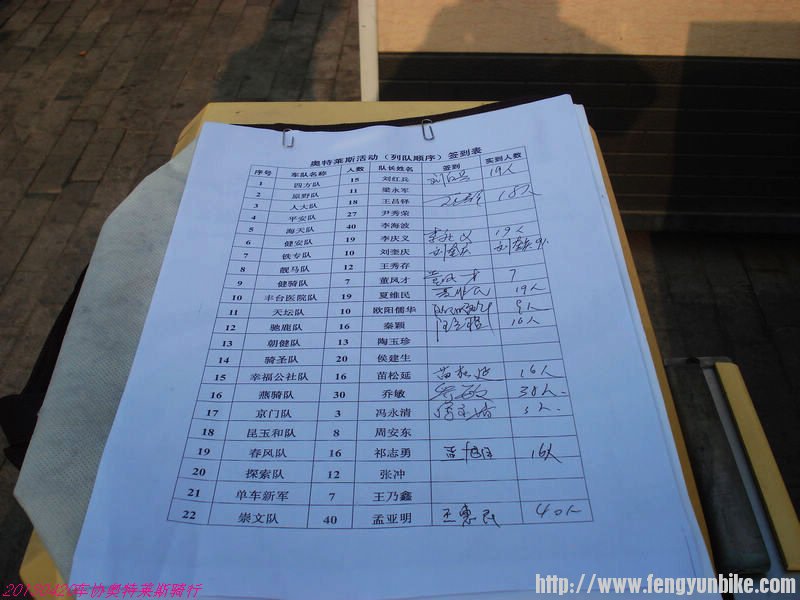 奥特莱斯活动（列队顺序）签到表
序号 车队名称 人数 队长姓名 签到 实到人数
1 四方队 15 刘红兵 刘红兵 19人
2 原野队 11 梁永军
3 人大队 18 王昌铎 18人
4 平安队 27 尹秀荣
5 海天队 40 李海波
6 健安队 19 李庆义 李庆义 19人
7 铁专队 10 刘奎庆 刘奎庆
8 靓马队 12 王秀存
9 健骑队 7 董凤才 7
10 丰台医院队 19 夏维民 夏维民 19人
11 天坛队 10 欧阳儒华 9人
12 驰鹿队 16 秦颖 16人
13 朝健队 13 陶玉珍
14 骑圣队 20 侯建生
15 幸福公社队 16 苗松延 苗松延 16人
16 燕骑队 30 乔敏 乔敏 38人
17 京门队 3 冯永清 3人
18 昆玉和队 8 周安东
19 春风队 16 祁志勇 16人
20 探索队 12 张冲
21 单车新军 7 王乃鑫
22 崇文队 40 孟亚明 王惠民 40人
车协奥特莱斯骑行
http://www.fengyunbike.com